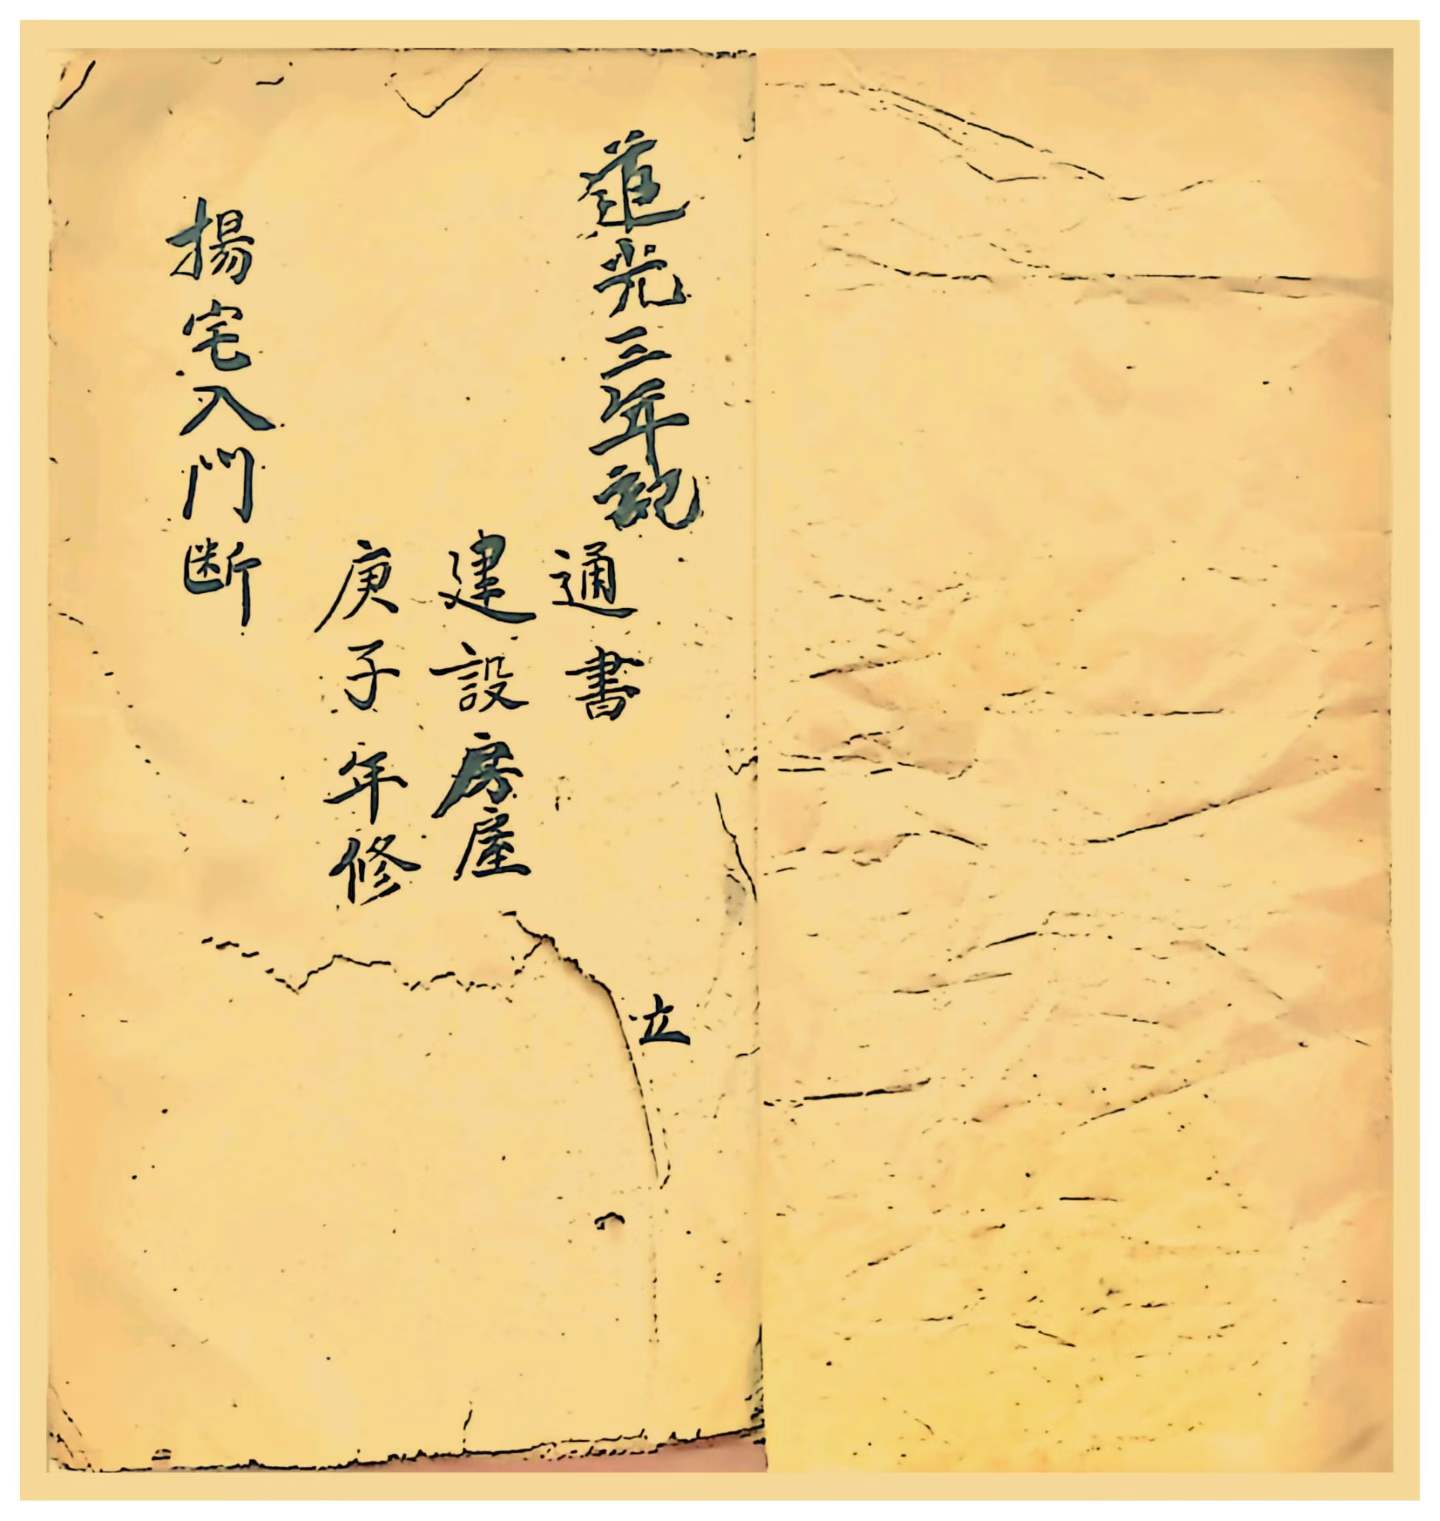 道光三年記
通書
立
建設房屋
庚子年修
揚宅入門断